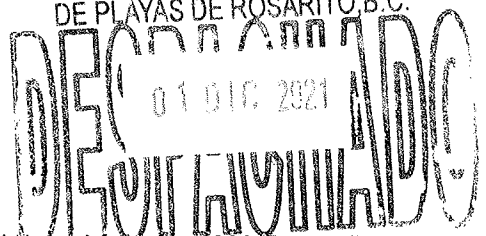 DE PLAYAS DE ROSARITO, B.C.
DESPACHADO
01 DIC 2021